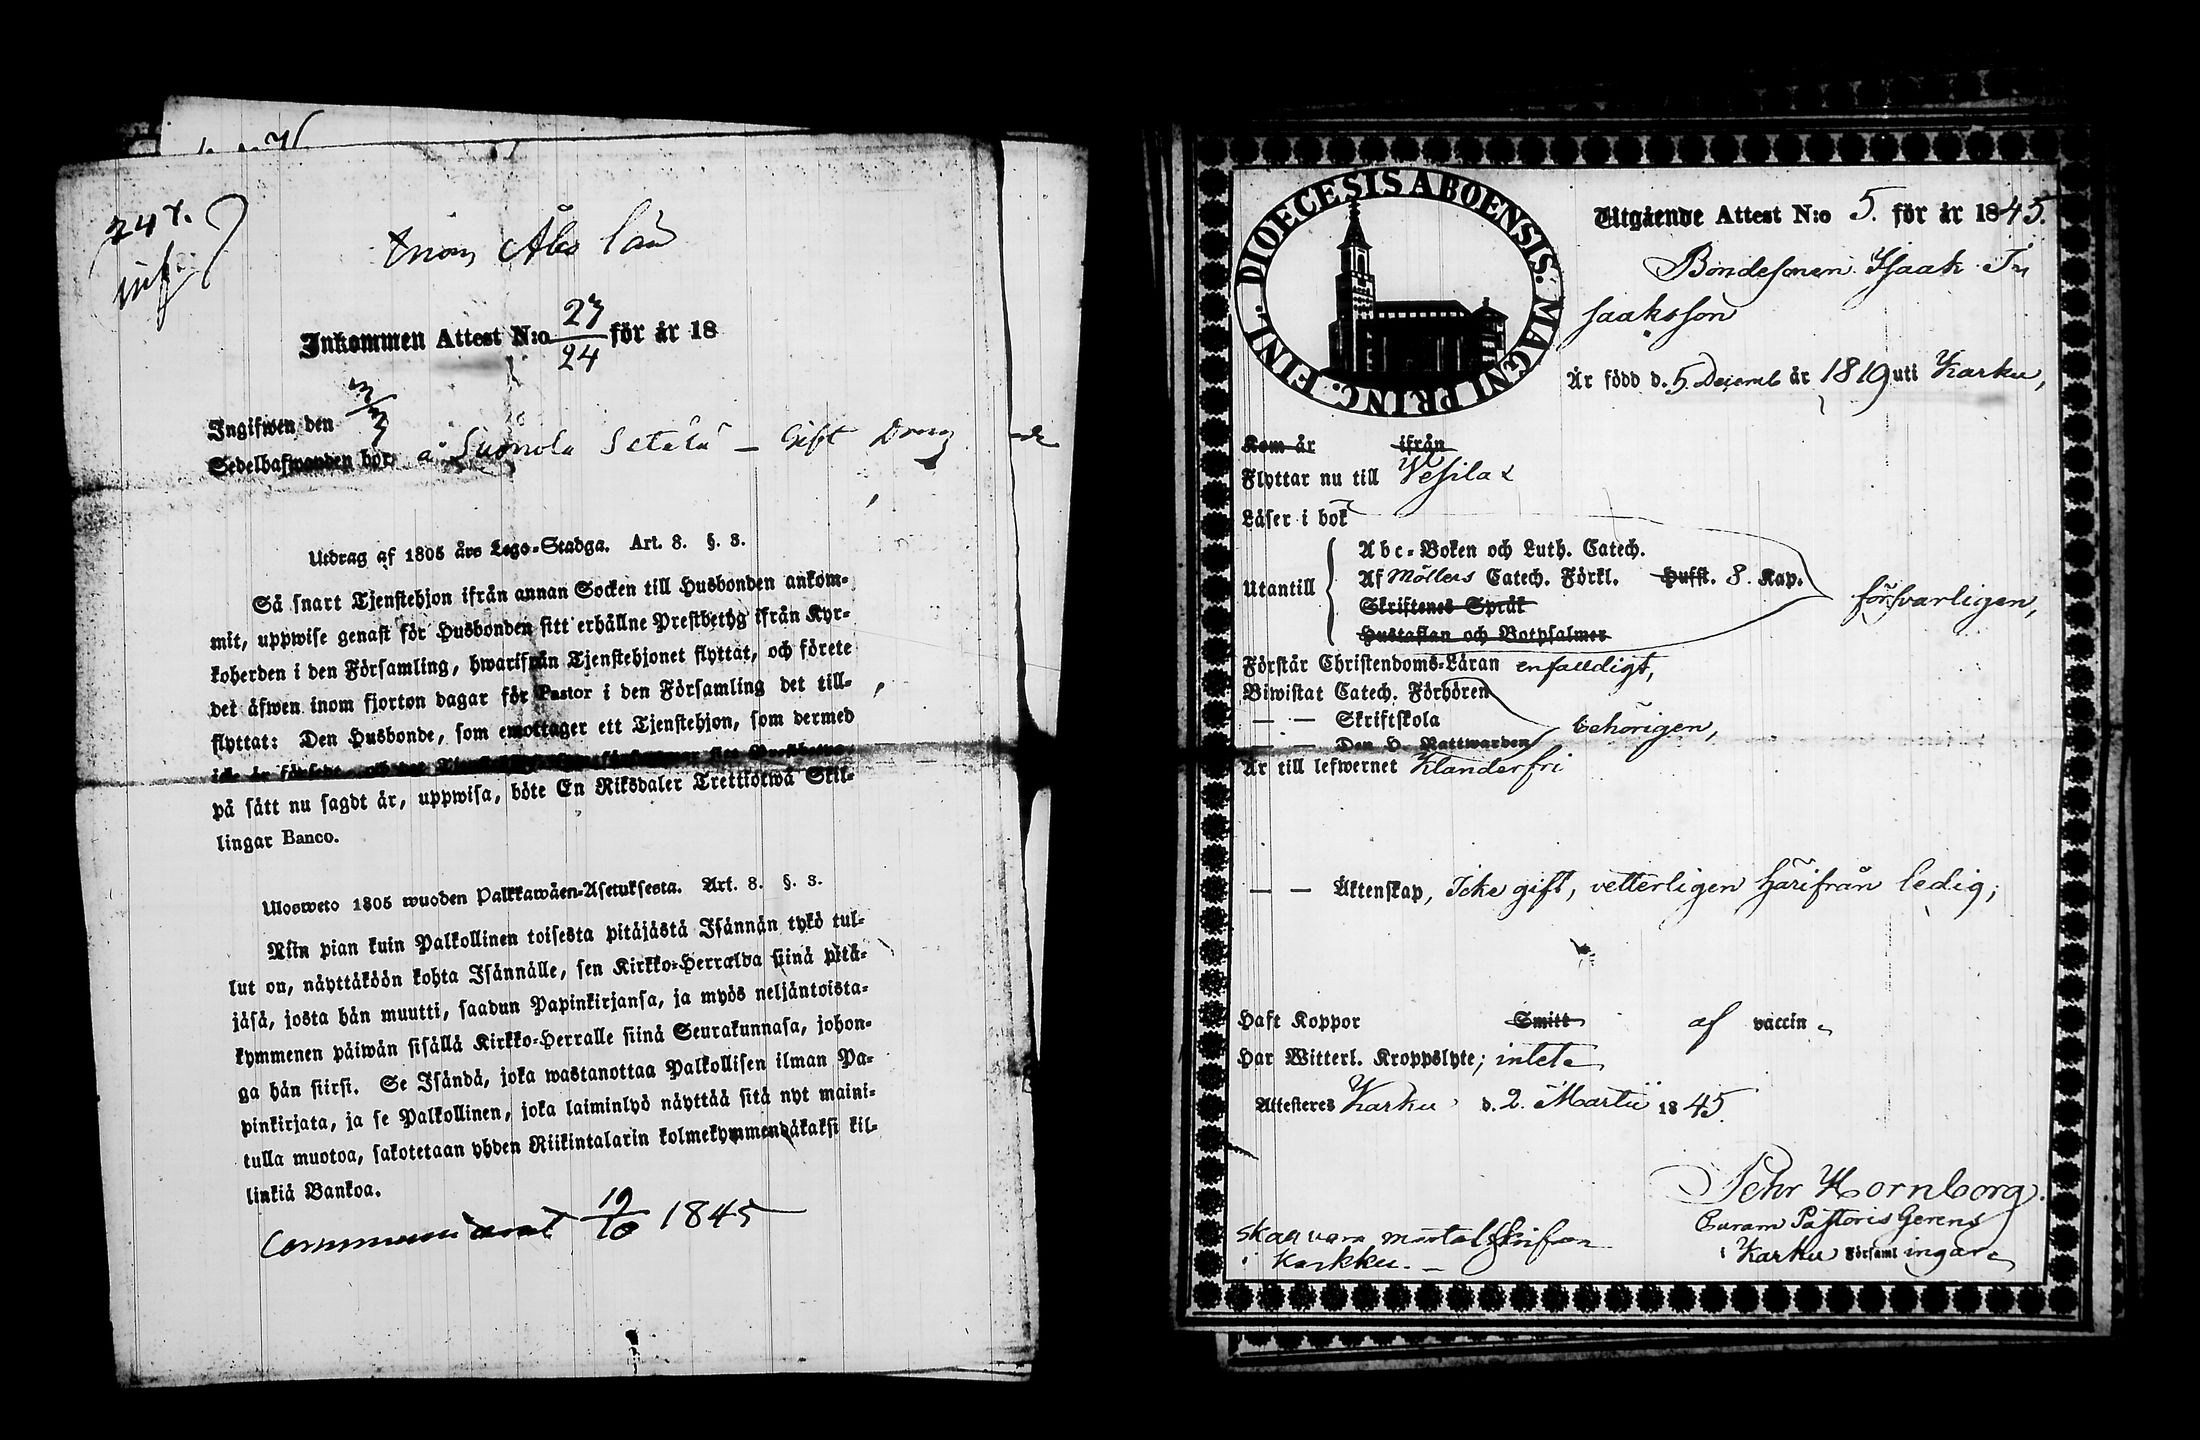 247.
inf.
Inom Åbo län
Inkommen Attest N:o 27/24 för år 18
Ingifwen den
Sedelhafwanden bor å Suomela Setälä — Gift Dreng
Utdrag af 1805 års Lego-Stadga. Art. 8. §. 3.
Så snart Tjenstehjon ifrån annan Socken till Husbonden ankom-
mit, uppwise genast för Husbonden sitt erhållne Prestbetyg ifrån Kyr-
koherden i den Församling, hwarifrån Tjenstehjonet flyttat, och förete
det äfwen inom fjorton dagar för Pastor i den Församling det till-
flyttat: Den Husbonde, som emottager ett Tjenstehjon, som dermed
icke är försedt, och det Tjenstehjon, som försummar sitt Prestbetyg
på sätt nu sagdt är, uppwisa, böte En Riksdaler Trettiotwå Skil-
lingar Banco.
Ulosweto 1805 wuoden Palkkawäen-Asetuksesta. Art. 8. §. 3.
Niin pian kuin Palkollinen toisesta pitäjästä Isännän tykö tul-
lut on, näyttäköön kohta Isännälle, sen Kirkko-Herralda siinä pitä-
jäsä, josta hän muutti, saadun Papinkirjansa, ja myös neljäntoista-
kymmenen päiwän sisällä Kirkko-Herralle siinä Seurakunnasa, johon-
ga hän siirsi. Se Isändä, joka wastanottaa Palkollisen ilman Pa-
pinkirjata, ja se Palkollinen, joka laiminlyö näyttää sitä nyt maini-
tulla muotoa, sakotetaan yhden Riikintalarin kolmekymmendäkaksi kil-
linkiä Bankoa.
Communicerat 19/10 1845
DIOECESIS ABOENSIS. MAGNI PRINC. FINL.
Utgående Attest N:o 5. för år 1845.
Bondesonen Isaak I
saaksson
Är född d. 5 Decemb år 1819 uti Karku,
Kom år ifrån
Flyttar nu till Vesilax
Läser i bok
Utantill
Abc-Boken och Luth. Catech.
Af Möllers Catech. Förkl. Hufst. 8. Kap.
Skriftenes Språk
Hustaflan och Botpsalmer
försvarligen,
Förstår Christendoms-Läran enfaldigt,
Biwistat Catech. Förhören
— — Skriftskola
— — Den H. Nattwarden
behörigen,
Är till lefwernet Klanderfri
— — Äktenskap, Icke gift, vetterligen härifrån ledig;
Haft Koppor Smitt af vaccin
Har Witterl. Kroppslyte; intet
Attesteres Karku d. 2. Martii 1845.
Pehr Hornborg.
Curam Pastoris Gerens
i Karku Församlingar
skall vara mantalskrifven
i Karkku. —